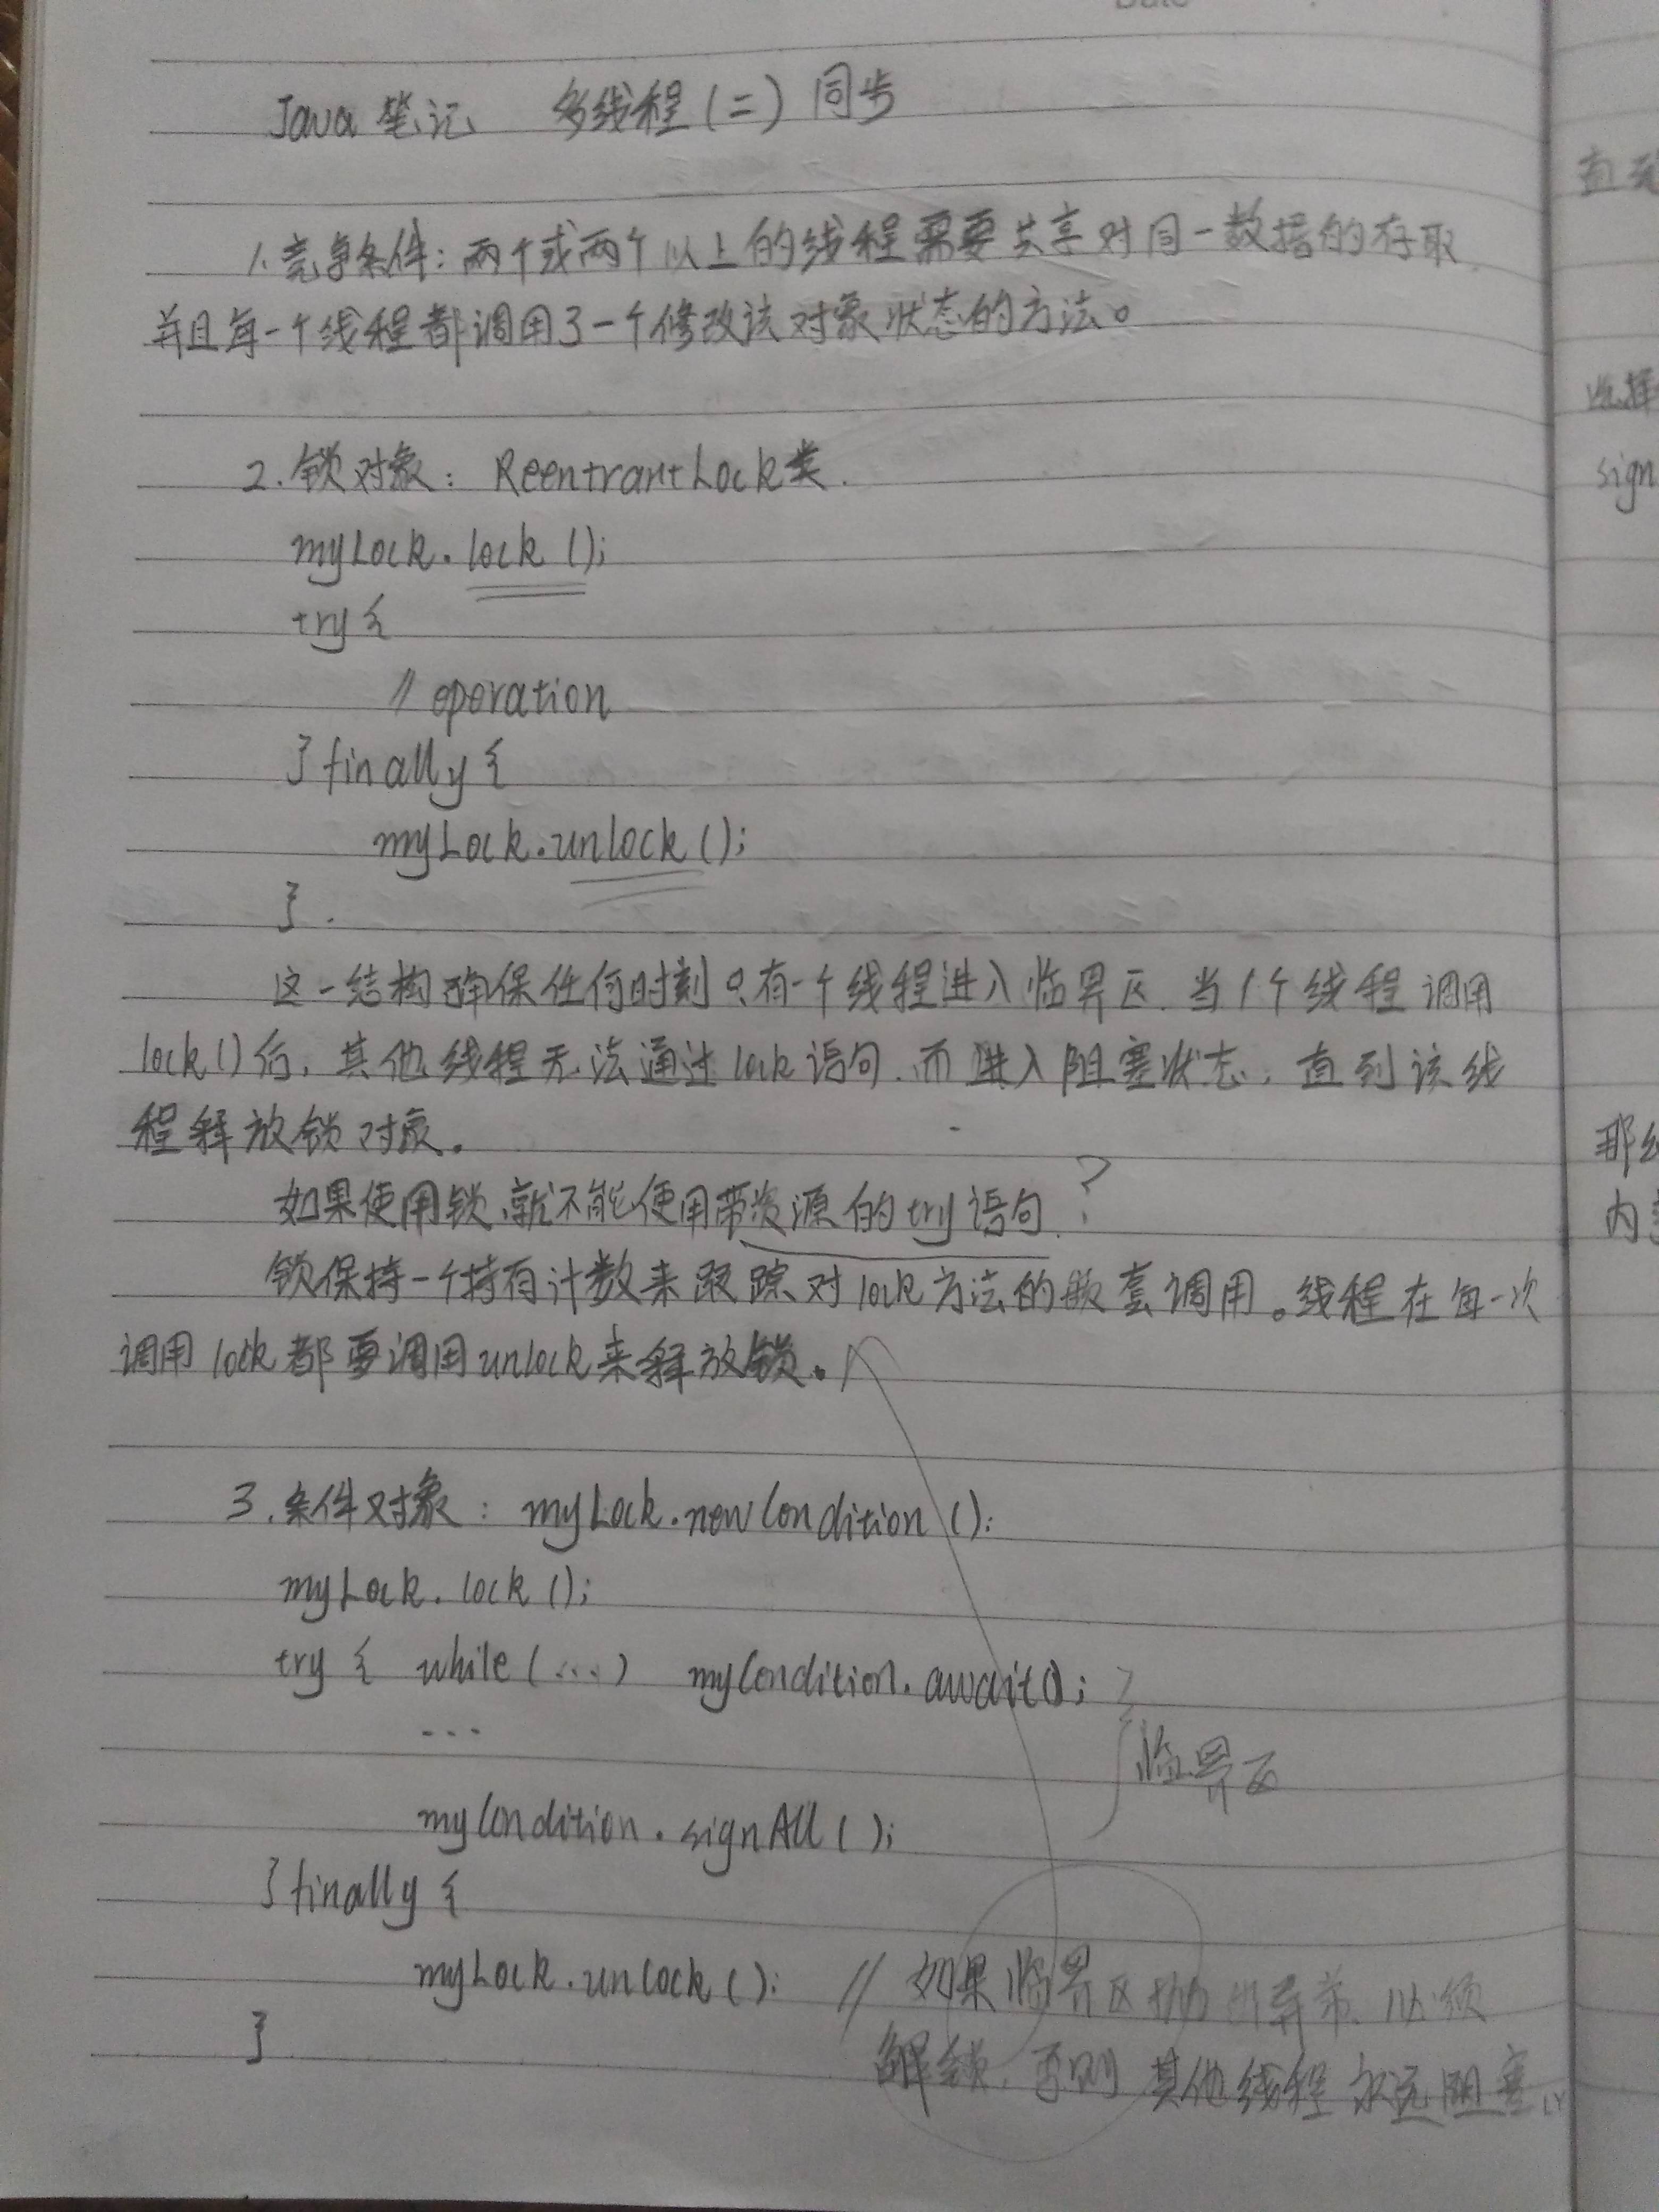 Date
Java 笔记 多线程(二) 同步
1.竞争条件:两个或两个以上的线程需要共享对同一数据的存取,
并且每一个线程都调用了一个修改该对象状态的方法。
2.锁对象: ReentrantLock类.
myLock.lock();
try {
// operation
} finally {
myLock.unlock();
}.
这一结构确保任何时刻只有一个线程进入临界区.当1个线程调用
lock()后,其他线程无法通过lock语句.而进入阻塞状态,直到该线
程释放锁对象.
如果使用锁,就不能使用带资源的try语句. ?
锁保持一个持有计数来跟踪对lock方法的嵌套调用。线程在每一次
调用lock都要调用unlock来释放锁.
3.条件对象: myLock.newCondition();
myLock.lock();
try { while(...) myCondition.await();
...
临界区
myCondition.signAll();
} finally {
myLock.unlock(); // 如果临界区抛出异常,必须
}
解锁,否则其他线程永远阻塞.
直到
选择
sign
那
内